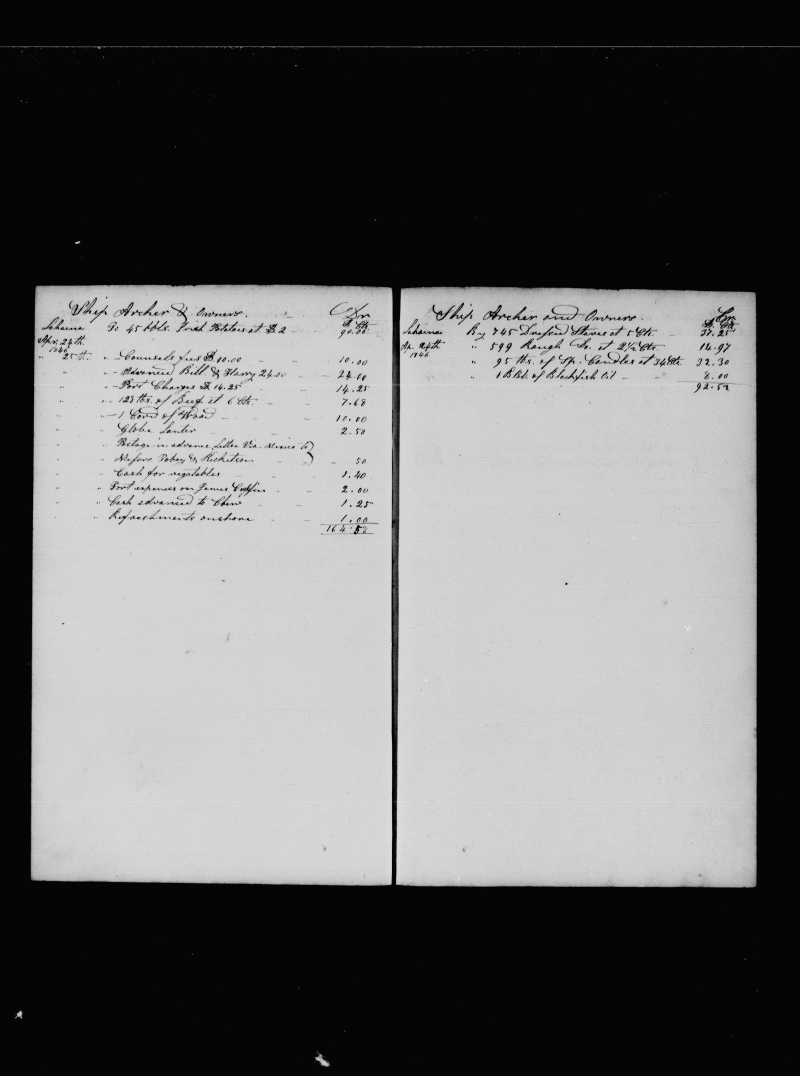 Ship Archer & Owners. Dr
$ Cts
Lahaina To 45 bbls. Irish Potatoes at $2 90.00
Apr. 24th
1846
" 25th. " Counsels fees $10.00 10.00
" " Advanced Bill & Harry 24.00 24.00
" " Port Charges $14.25 14.25
" " 128 lbs. of Beef at 6 Cts. 7.68
" " 1 Cord of Wood 10.00
" " Globe Lanter 2.50
" " Postage in advance letter Via Mexico to
" " Messrs Tobey & Ricketson 50
" " Cash for vegetables 1.40
" " Port expences on James Coffin 2.00
" " Cash advanced to Crew 1.25
" " Refreshments onshore 1.00
164.58
Ship Archer and Owners. Cr
$ Cts
Lahaina By 745 Dressed Staves at 5 Cts 37.25
Ap. 24th " 599 Rough Do. at 2½ Cts 14.97
1846 " 95 lbs. of Sp. Candles at 34 Cts. 32.30
" 1 Bbl. of Blackfish Oil 8.00
92.52